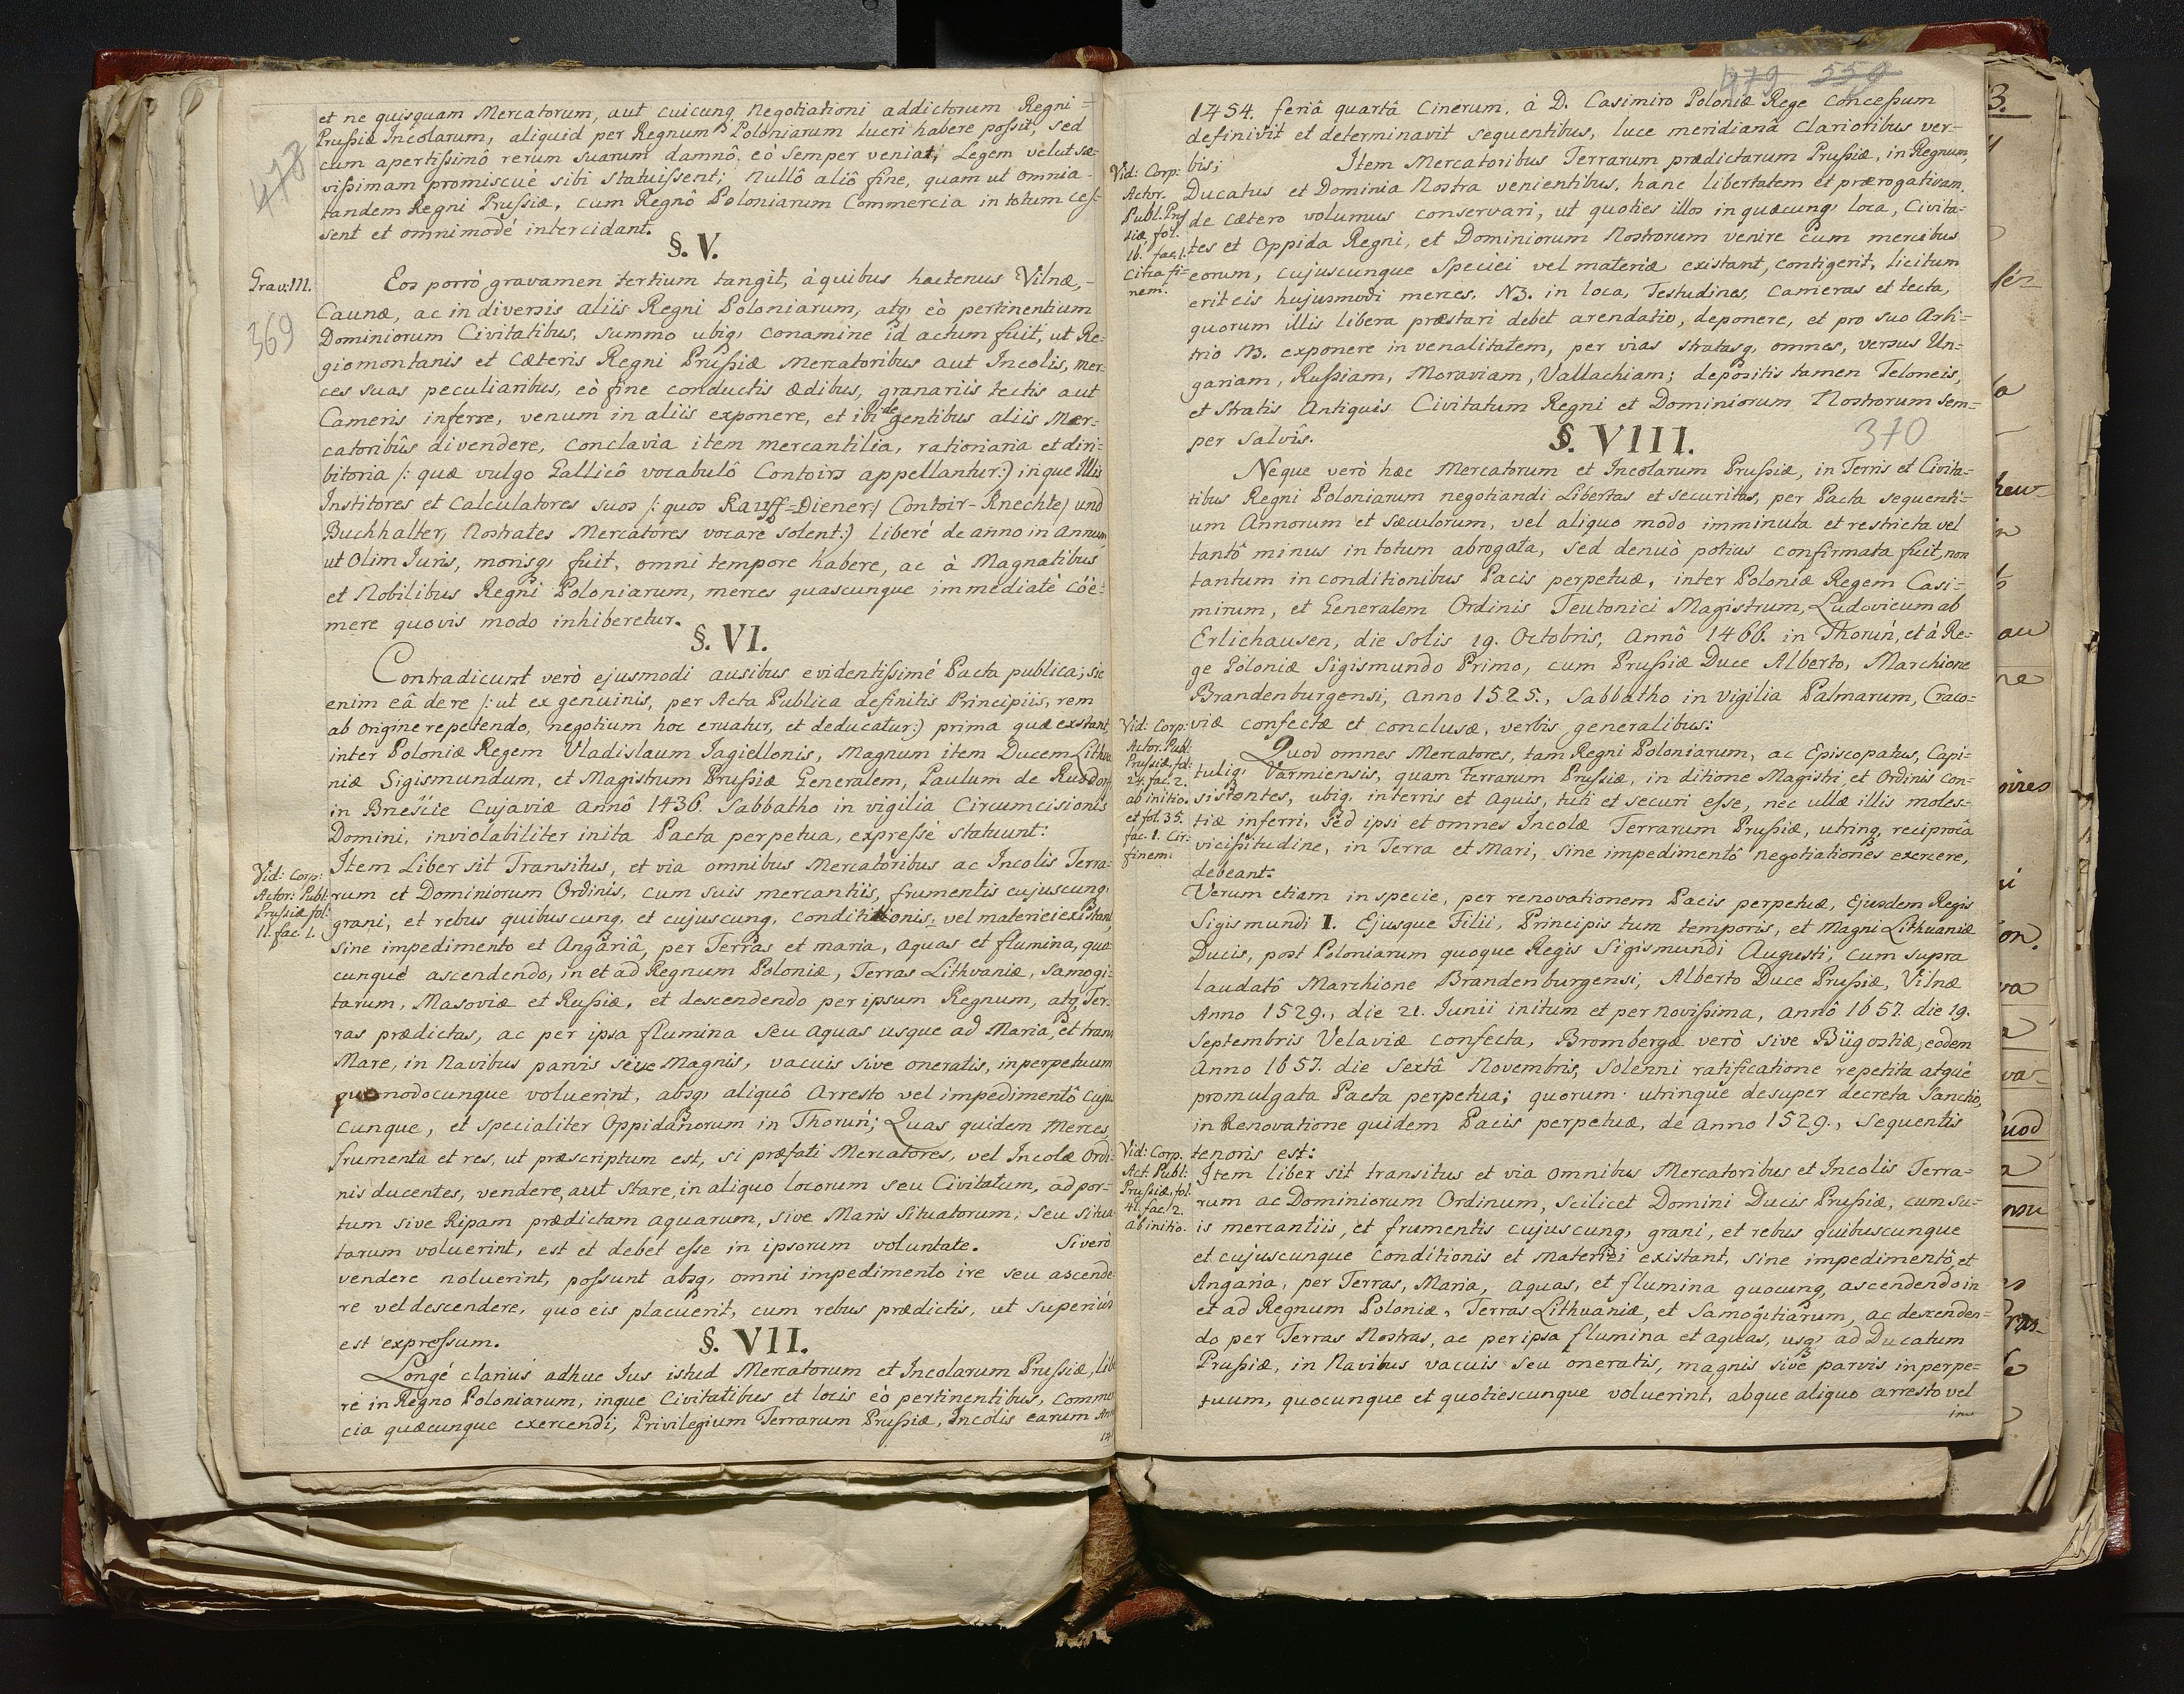 478
et ne quisquam Mercatorum, aut cuicunq, Negotiationi addictorum Regni=
Prußiæ Incolarum, aliquid per Regnum Poloniarum lucri habere poßit, sed
cum apertißimô rerum suarum damnô, eò semper veniat, Legem velut sæ-
vißimam promiscuè sibi statuißent; Nullô aliô fine, quam ut omnia-
tandem Regni Prußiæ, cum Regnô Poloniarum Commercia in totum ceß-
sent et omnimodé intercidant.
§. V.
Grav: III.
369
Eos porrò gravamen tertium tangit, à quibus hactenus Vilnæ,-
Caunæ, ac in diversis aliis Regni Poloniarum, atq, eò pertinentium
Dominiorum Civitatibus, summo ubiq, conamine id actum fuit, ut Re-
giomontanis et Cæteris Regni Prußiæ Mercatoribus aut Incolis, mer-
ces suas peculiaribus, eò fine conductis ædibus, granariis tectis aut
Cameris inferre, venum in aliis exponere, et ibi degentibus aliis Mer-
catoribûs divendere, conclavia item mercantilia, rationaria et diri-
bitoria /: quæ vulgo Gallicô vocabulô Contoirs appellantur:) inque illis
Institores et Calculatores suos /: quos Kauff=Diener/ Contoir-Knechte/ und
Buchhalter, Nostrates Mercatores vocare solent:) liberé de anno in annum
ut Olim Iuris, morisq, fuit, omni tempore habere, ac à Magnatibus
et Nobilibus Regni Poloniarum, merces quascunque immediaté cöe-
mere quovis modo inhiberetur.
§. VI.
Contradicunt verò ejusmodi ausibus evidentißimé Pacta publica; sic
enim eâ de re /: ut ex genuinis, per Acta Publica definitis Principiis, rem
ab origine repetendo, negotium hoc eruatur, et deducatur:) prima quæ exstant,
inter Poloniæ Regem Vladislaum Jagiellonis, Magnum item Ducem Lithua
niæ Sigismundum, et Magistrum Prußiæ Generalem, Paulum de Rusdorff
in Brieście Cujaviæ annô 1436. Sabbatho in vigilia Circumcisionis
Domini, inviolabiliter inita Pacta perpetua, expreßé statuunt:
Vid: Corp:
Actor: Publ:
Prußiæ fol:
11. fac. 1.
Item Liber sit Transitus, et via omnibus Mercatoribus ac Incolis Terra-
rum et Dominiorum Ordinis, cum suis mercantiis, frumentis cujuscunq,
grani, et rebus quibuscunq, et cujuscunq, conditionis, vel materiei existant,
sine impedimento et Angariâ, per Terras et maria, aquas et flumina, quo
cunqué ascendendo, in et ad Regnum Poloniæ, Terras Lithvaniæ, Samogi-
tarum, Masoviæ et Rußiæ, et descendendo per ipsum Regnum, atq, Ter-
ras prædictas, ac per ipsa flumina seu aquas usque ad Maria, et trans
Mare, in Navibus parvis sive Magnis, vacuis sive oneratis, in perpetuum
quomodocunque voluerint, absq, aliquô Arresto vel impedimentô cujus
cunque, et specialiter Oppidanorum in Thoruń; Quas quidem Merces
frumenta et res, ut præscriptum est, si præfati Mercatores, vel Incolæ Ordi-
nis ducentes, vendere, aut stare, in aliquo locorum seu Civitatum, ad por-
tum sive Ripam prædictam aquarum, sive Maris situatorum, seu situa
tarum voluerint, est et debet eße in ipsorum voluntate. Si verò
vendere noluerint, poßunt absq, omni impedimento ire seu ascende
re vel descendere, quo eis placuerit, cum rebus prædictis, ut superiùs
est expreßum.
§. VII.
Longé clarius adhuc Ius istud Mercatorum et Incolarum Prußiæ, libe
ré in Regno Poloniarum, inque Civitatibus et locis eò pertinentibus, Comme
cia quæcunque exercendi, Privilegium Terrarum Prußiæ, Incolis earum
479 550
1454. feriâ quartâ Cinerum, à D. Casimiro Poloniæ Rege Conceßum
definivit et determinavit sequentibus, luce meridianâ Clarioribus ver-
bis;
Vid: Corp:
Actor.
Publ. Prus
siæ fol.
16. fac. 1.
citra fi-
nem.
Item Mercatoribus Terrarum prædictarum Prußiæ, in Regnum,
Ducatus et Dominia Nostra venientibus, hanc libertatem et prærogativam,
de cætero volumus conservari, ut quoties illos in quæcunq, loca, Civita-
tes et Oppida Regni, et Dominiorum Nostrorum venire cum mercibus
eorum, cujuscunque Speciei vel materiæ existant, contigerit, licitum
erit eis hujusmodi merces. NB. in loca, Testudines, Cameras et tecta,
quorum illis libera præstari debet arendatio, deponere, et pro suo Arbi-
trio NB. exponere in venalitatem, per vias stratasq, omnes, versus Un-
gariam, Rußiam, Moraviam, Vallachiam; depositis tamen Teloneis,
et Stratis Antiquis Civitatum Regni et Dominiorum Nostrorum sem-
per salvîs.
§. VIII.
370
Neque verò hæc Mercatorum et Incolarum Prußiæ, in Terris et Civita-
tibus Regni Poloniarum negotiandi Libertas et securitas, per Pacta sequenti-
um Annorum et Sæculorum, vel aliquo modo imminuta et restricta vel
tantô minus in totum abrogata, sed denuò potius confirmata fuit, non
tantum in conditionibus Pacis perpetuæ, inter Poloniæ Regem Casi-
mirum, et Generalem Ordinis Teutonici Magistrum, Ludovicum ab
Erlichausen, die Solis 19. Octobris, Annô 1466. in Thoruń, et à Re-
ge Poloniæ Sigismundo Primo, cum Prußiæ Duce Alberto, Marchione
Brandenburgensi, Anno 1525., Sabbatho in vigilia Palmarum, Craco-
viæ confectæ et conclusæ, verbis generalibus:
Vid: Corp:
Actor. Publ:
Prußiæ fol:
24. fac. 2.
ab initio.
et fol. 35.
fac. 1. Cir:
finem.
Quod omnes Mercatores, tam Regni Poloniarum, ac Episcopatus, Capi-
tuliq, Varmiensis, quam Terrarum Prußiæ, in ditione Magistri et Ordinis con-
sistentes, ubiq, in terris et aquis, tuti et securi eße, nec ullæ illis moles-
tiæ inferri, Sed ipsi et omnes Incolæ Terrarum Prußiæ, utrinq, reciprocâ
vicißitudine, in Terra et Mari, sine impedimentô negotiationes exercere,
debeant.
Verum etiam in specie, per renovationem Pacis perpetuæ, Ejusdem Regis
Sigismundi I. Ejusque Filii, Principis tum temporis, et Magni Lithvaniæ
Ducis, post Poloniarum quoque Regis Sigismundi Augusti, cum supra
laudatô Marchione Brandenburgensi, Alberto Duce Prußiæ, Vilnæ
Anno 1529., die 21. Junii initum et per novißima, annô 1657. die 19.
Septembris Velaviæ confecta, Brombergæ verò sive Bÿgostiæ, eodem
Anno 1657. die Sextâ Novembris, solenni ratificatione repetita atque
promulgata Pacta perpetua; quorum utrinque desuper decreta Sanctio,
in Renovatione quidem Pacis perpetuæ, de Anno 1529., sequentis
tenoris est:
Vid: Corp.
Act. Publ:
Prußiæ, fol.
41. fac. 2.
ab initio.
Item liber sit transitus et via omnibus Mercatoribus et Incolis Terra-
rum ac Dominiorum Ordinum, scilicet Domini Ducis Prußiæ, cum su-
is mercantiis, et frumentis cujuscunq, grani, et rebus quibuscunque
et cujuscunque conditionis et materiei existant, sine impedimentô, et
Angaria, per Terras, Maria, aquas, et flumina quocunq, ascendendo in
et ad Regnum Poloniæ, Terras Lithvaniæ, et Samogitiarum, ac descenden-
do per Terras Nostras, ac per ipsa flumina et aquas, usq, ad Ducatum
Prußiæ, in Navibus vacuis seu oneratis, magnis sive parvis in perpe-
tuum, quocunque et quotiescunque voluerint, absque aliquo arresto vel
im-